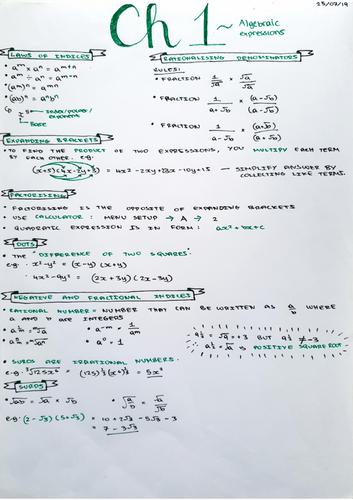 23/07/19
Ch 1 ~ Algebraic expressions
LAWS OF INDICES
• aᵐ × aⁿ = aᵐ⁺ⁿ
• aᵐ ÷ aⁿ = aᵐ⁻ⁿ
• (aᵐ)ⁿ = aᵐⁿ
• (ab)ⁿ = aⁿbⁿ
x⁵ → index/power/exponent
Base
RATIONALISING DENOMINATORS
RULES:
• FRACTION 1/√a × √a/√a
• FRACTION 1/(a+√b) × (a-√b)/(a-√b)
• FRACTION 1/(a-√b) × (a+√b)/(a+√b)
EXPANDING BRACKETS
• TO FIND THE PRODUCT OF TWO EXPRESSIONS, YOU MULTIPLY EACH TERM
BY EACH OTHER. e.g.
(x+5)(4x-2y+3) = 4x² - 2xy + 23x - 10y + 15 — SIMPLIFY ANSWER BY
COLLECTING LIKE TERMS.
FACTORISING
• FACTORISING IS THE OPPOSITE OF EXPANDING BRACKETS
• USE CALCULATOR: MENU SETUP → A → 2
• QUADRATIC EXPRESSION IS IN FORM: ax² + bx + c
DOTS
• THE "DIFFERENCE OF TWO SQUARES"
e.g. x² - y² = (x-y)(x+y)
4x² - 9y² = (2x+3y)(2x-3y)
NEGATIVE AND FRACTIONAL INDICES
• RATIONAL NUMBER = NUMBER THAT CAN BE WRITTEN AS a/b WHERE
a AND b ARE INTEGERS
• a⁻ᵐ = 1/aᵐ
• a⁰ = 1
• SURDS ARE IRRATIONAL NUMBERS.
IS POSITIVE SQUARE ROOT
SURDS
• √ab = √a × √b
• √(a/b) = √a/√b
e.g. (2-√3)(5+√3) = 10 + 2√3 - 5√3 - 3
= 7 - 3√3